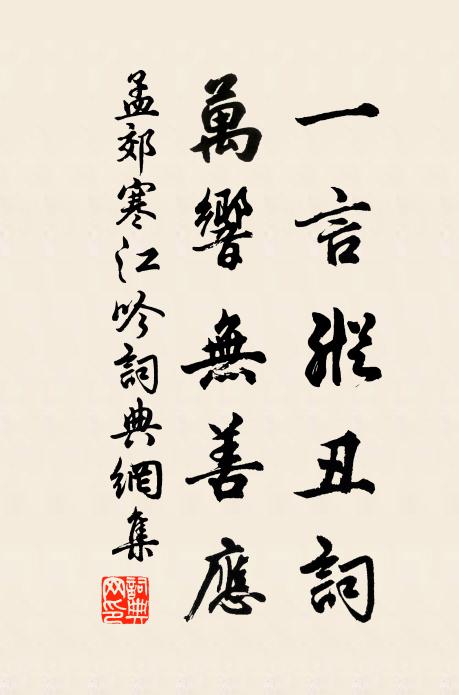 一言縱丑詞
萬響無善應
孟郊寒江吟詞典網集
詞典網印